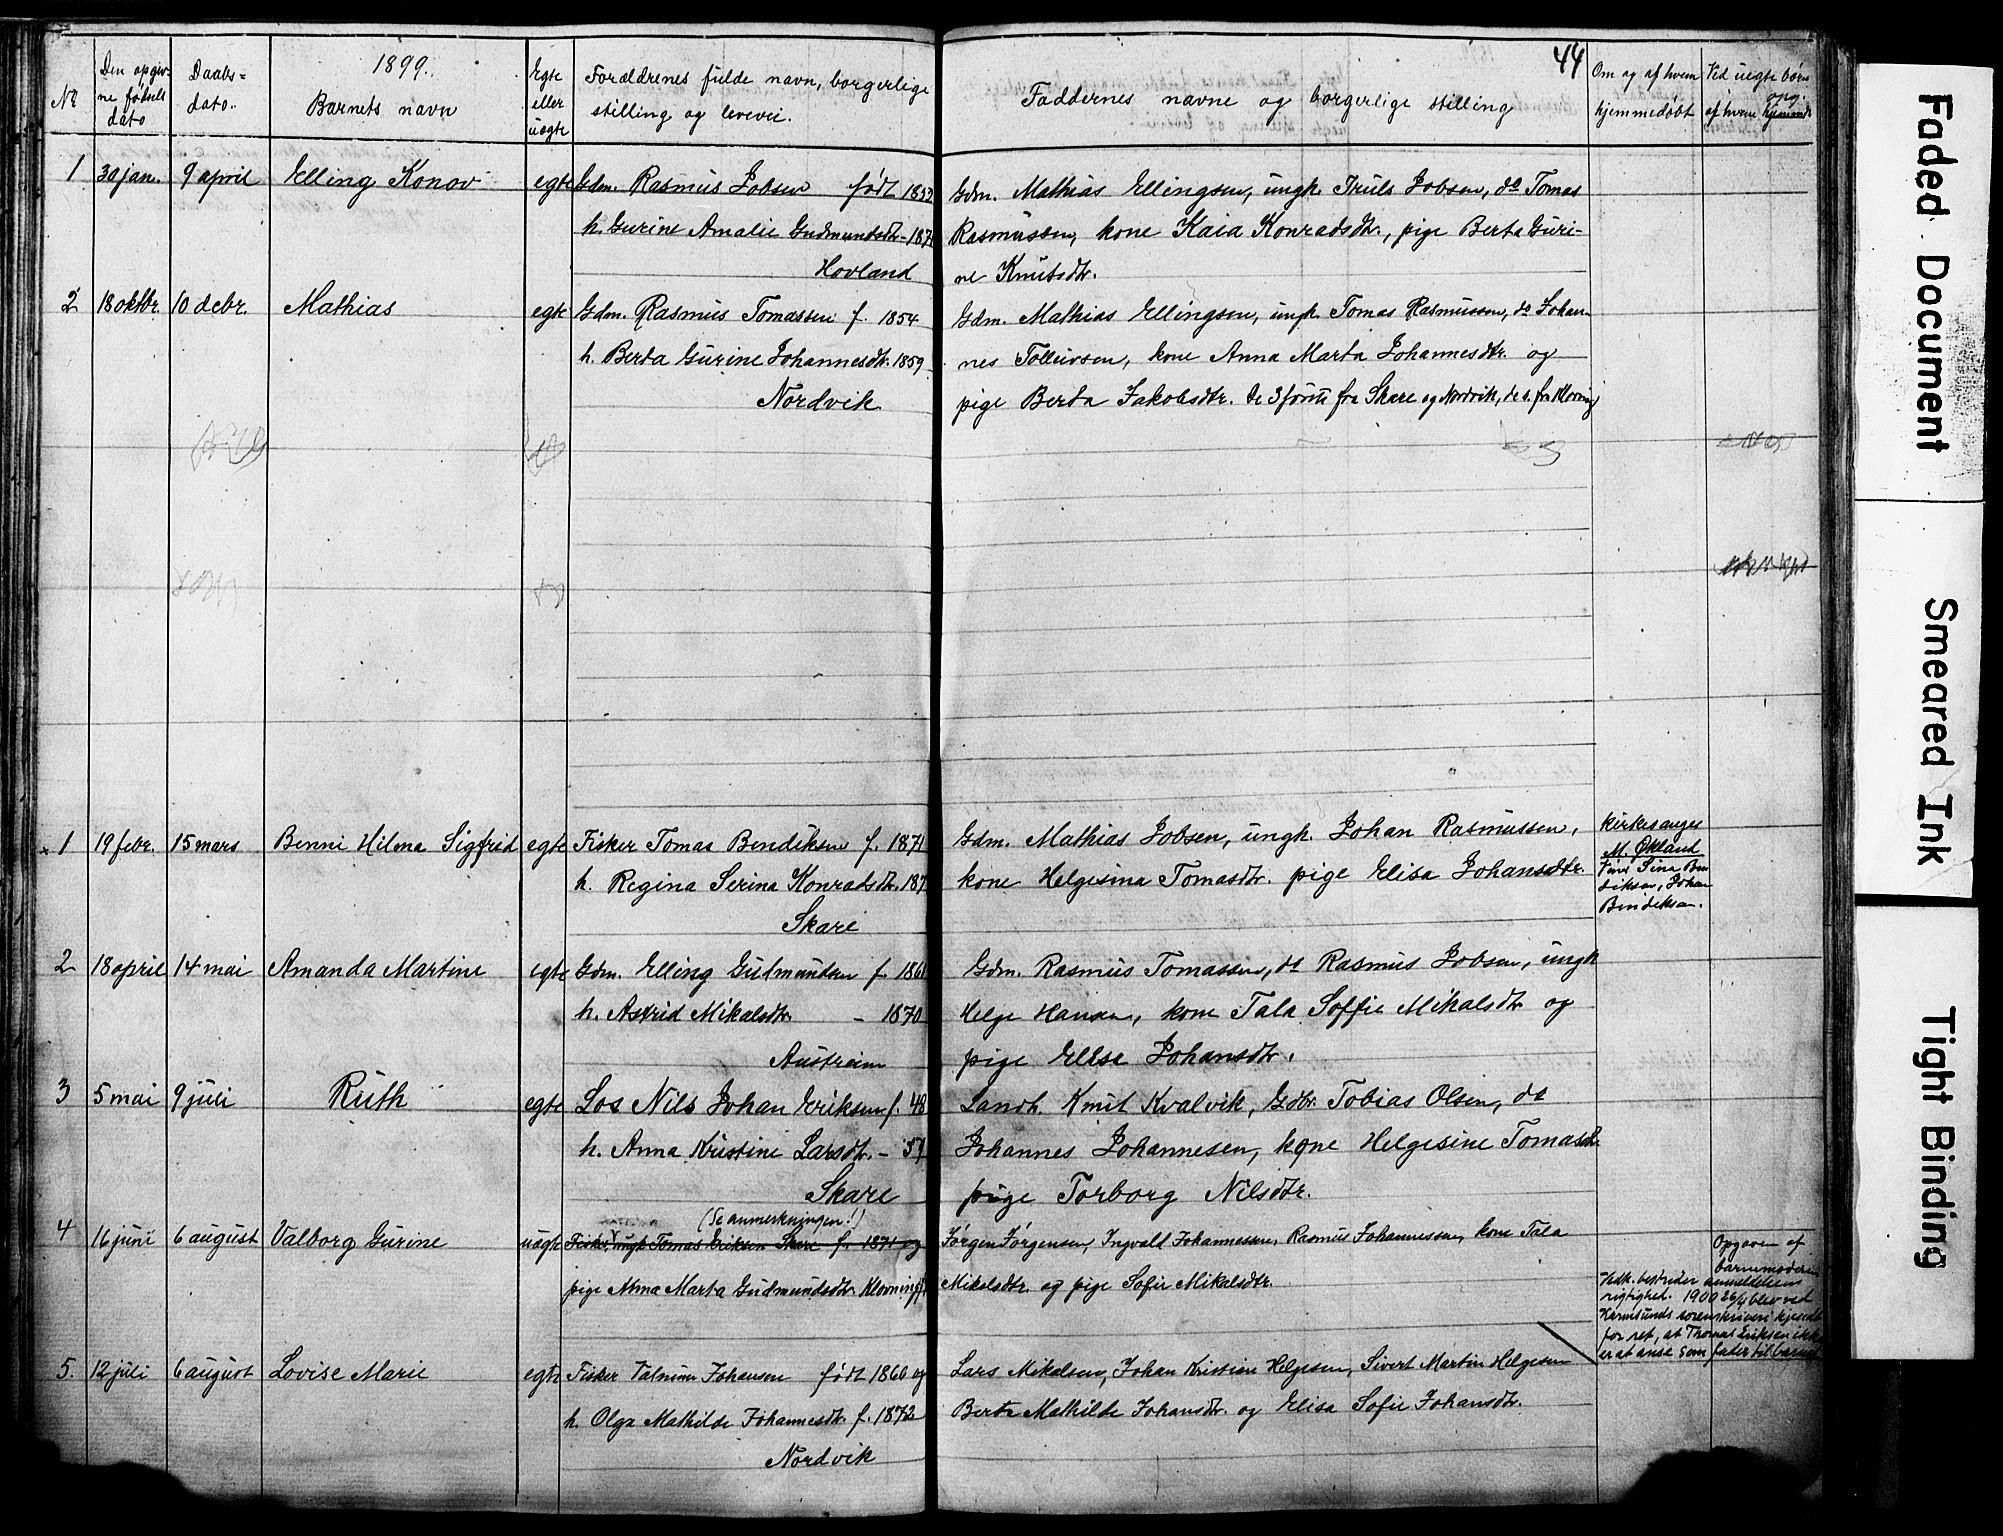 44
Nº
Den opgiv-
ne fødsels
dato
Daabs=
dato.
1899.
Barnets navn
Egte
eller
uegte
Forældrenes fulde navn, borgerlige
stilling og levevei.
Faddernes navne og borgerlige stilling
Om og af hvem
hjemmedøbt
Ved uegte børn
opg.
af hvem
1 30 jan. 9 april Elling Konov egte Gdm. Rasmus Jobsen født 1853
h. Gurine Amalie Gudmundsdtr. - 187
Hovland
Gdm. Mathias Ellingsen, ungk. Truls Jobsen, do Tomas
Rasmussen, kone Kaia Konradsdtr., pige Berta Guri-
ne Knutsdtr.
2 18 oktbr. 10 debr. Mathias egte Gdm. Rasmus Tomassen f. 1854
h. Berta Gurine Johannesdtr. 1859
Nordvik
Gdm. Mathias Ellingsen, ungk. Tomas Rasmussen, do Johan-
nes Tolleivsen, kone Anna Marta Johannesdtr. og
pige Berta Jakobsdtr. de 3 første fra Skare og Nordvik, de s. fra Kloning
x 1 19 febr. 15 mars Benni Hilma Sigfrid egte Fisker Tomas Bendiksen f. 1871
h. Regina Serina Konradsdtr. 187
Skare
Gdm. Mathias Jobsen, ungk. Johan Rasmussen,
kone Helgesina Tomasdtr. pige Elisa Johansdtr.
Kirkesanger
M. Økland
Sina Ben
diksen, Johan
Bendiksen.
2 18 april 14 mai Amanda Martine egte Gdm. Elling Gudmundsen f. 1861
h. Astrid Mikalsdtr. - 1870
Austreim
Gdm. Rasmus Tomassen, do Rasmus Jobsen, ungk
Helge Hansen, kone Tala Soffie Mikalsdtr og
pige Elisa Johansdtr.
3 5 mai 9 juli Ruth egte Los Nils Johan Eriksen f. 48
h. Anna Kristine Larsdtr. - 57
Skare
Landh. Knut Kvalvik, Gdbr. Tobias Olsen, do
Johannes Johannesen, kone Helgesine Tomasdtr
pige Torborg Nilsdtr.
(Se anmerkningen!)
4 16 juni 6 august Valborg Gurine uegte Fisker, ungk Tomas Eriksen Skare f. 1871 og
pige Anna Marta Gudmundsdtr. Klovning f.
Jørgen Jørgensen, Ingvald Johannessen, Rasmus Johannessen, kone Tala
Mikalsdtr. og pige Sofie Mikalsdtr.
Opgaven af
barnemoderen
Vedk. bestrider anmeldelsens
rigtighed. 1900 26/4 blev ved
Karmsunds sorenskriveri kjendt
for ret, at Thomas Eriksen ikke
er at anse som fader til barnet
5. 12 juli 6 august Lovise Marie egte Fisker Valnum Johansen født 1866 og
h. Olga Mathilde Johannesdtr. f. 1872
Nordvik
Lars Mikalsen, Johan Kristian Helgesen, Sivert Martin Helgesen
Berta Mathilde Johansdtr. og Elisa Sofie Johansdtr.
Faded Document
Smeared Ink
Tight Binding